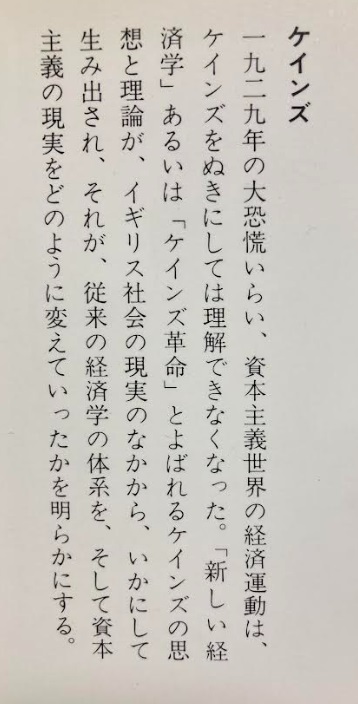 ケインズ
一九二九年の大恐慌いらい、資本主義世界の経済運動は、
ケインズをぬきにしては理解できなくなった。「新しい経
済学」あるいは「ケインズ革命」とよばれるケインズの思
想と理論が、イギリス社会の現実のなかから、いかにして
生み出され、それが、従来の経済学の体系を、そして資本
主義の現実をどのように変えていったかを明らかにする。